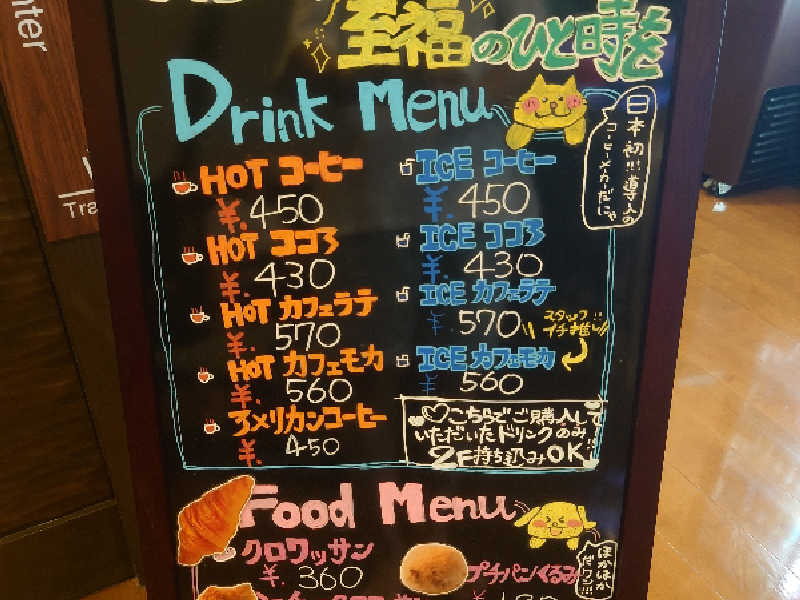 nter
Tra
至福のひと時を
Drink Menu
日本初!!!導入の
コーヒーメーカーだにゃ
HOT コーヒー
¥.450
HOT ココア
¥.430
HOT カフェラテ
¥.570
HOT カフェモカ
¥.560
アメリカンコーヒー
¥.450
ICE コーヒー
¥.450
ICE ココア
¥.430
ICE カフェラテ
¥.570
スタッフ
イチ推し!!
ICE カフェモカ
¥.560
こちらでご購入して
いただいたドリンクのみ
2F持ち込みOK!!
Food Menu
クロワッサン
¥.360
プチパン/くるみ
ほかほか
だワン!!!